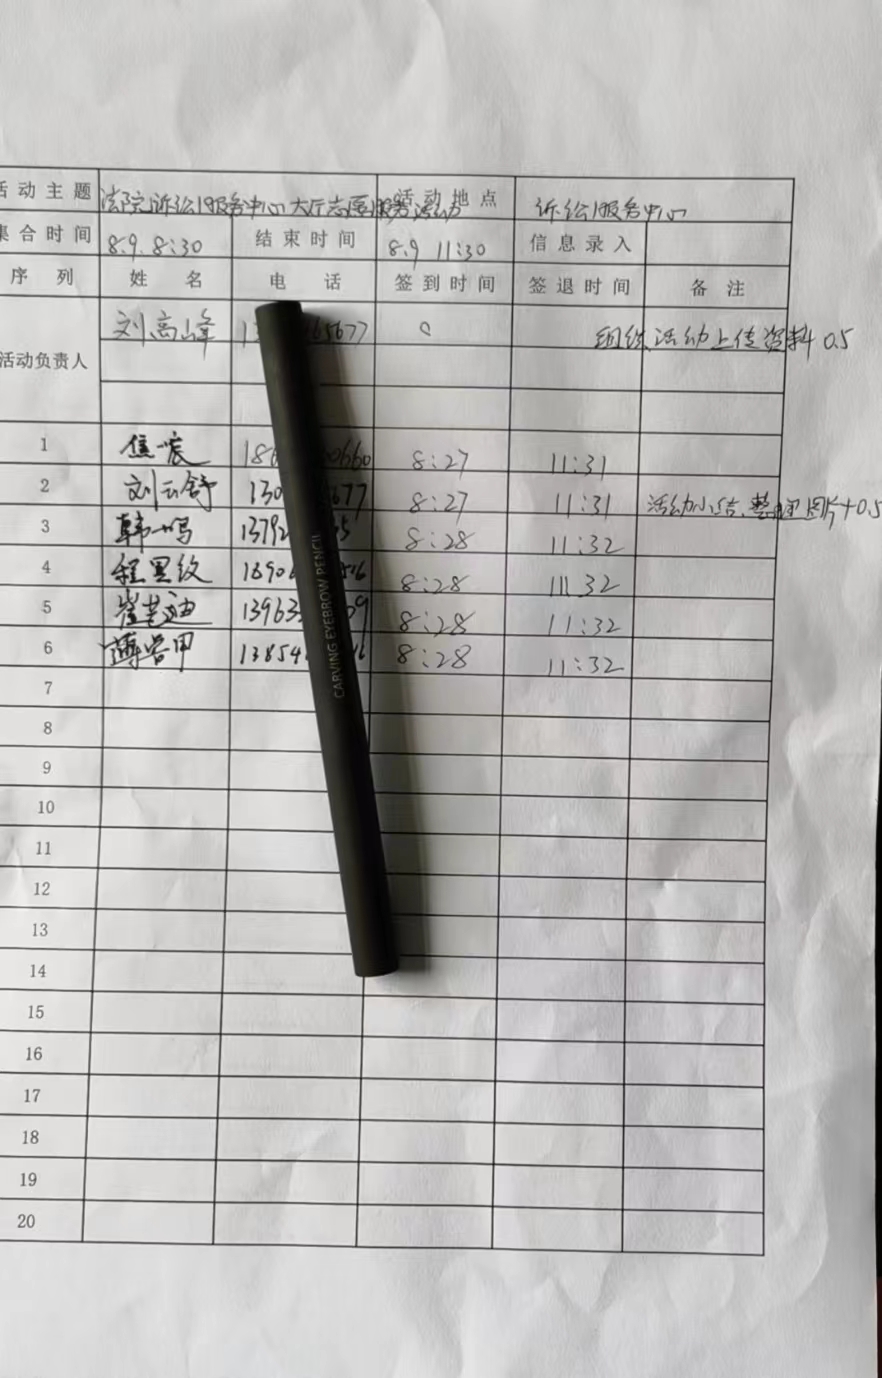 活动主题 法院诉讼服务中心大厅志愿服务活动 活动地点 诉讼服务中心
集合时间 8.9. 8:30 结束时间 8.9 11:30 信息录入
序列 姓名 电话 签到时间 签退时间 备注
活动负责人 刘高峰 1 65677 组织活动上传资料+0.5
1 焦宸 18 0660 8:27 11:31
2 刘云舒 130 677 8:27 11:31 活动小结、整理图片+0.5
3 韩一鸣 13792 5 8:28 11:32
4 程 纹 1890 8:28 11:32
5 崔芝迪 13963 9 8:28 11:32
6 薄 甲 13854 8:28 11:32
7
8
9
10
11
12
13
14
15
16
17
18
19
20
CARVING EYEBROW PENCIL